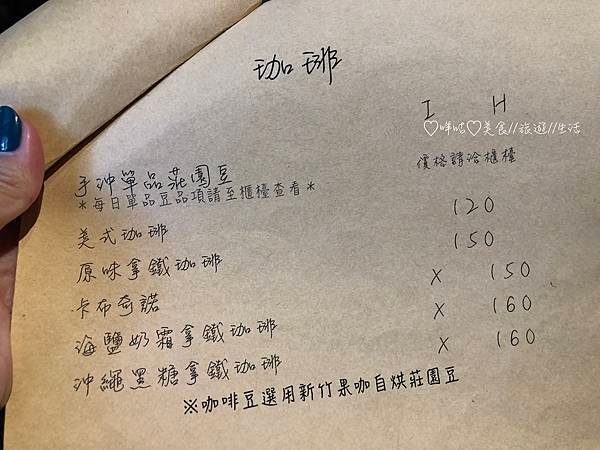 珈琲
I H
♡咩咕♡美食//旅遊//生活
手沖單品莊園豆 價格請洽櫃檯
*每日單品豆品項請至櫃檯查看*
美式珈琲 120
原味拿鐵珈琲 150
卡布奇諾 X 150
海鹽奶霜拿鐵珈琲 X 160
沖繩黑糖拿鐵珈琲 X 160
※咖啡豆選用新竹果咖自烘莊園豆